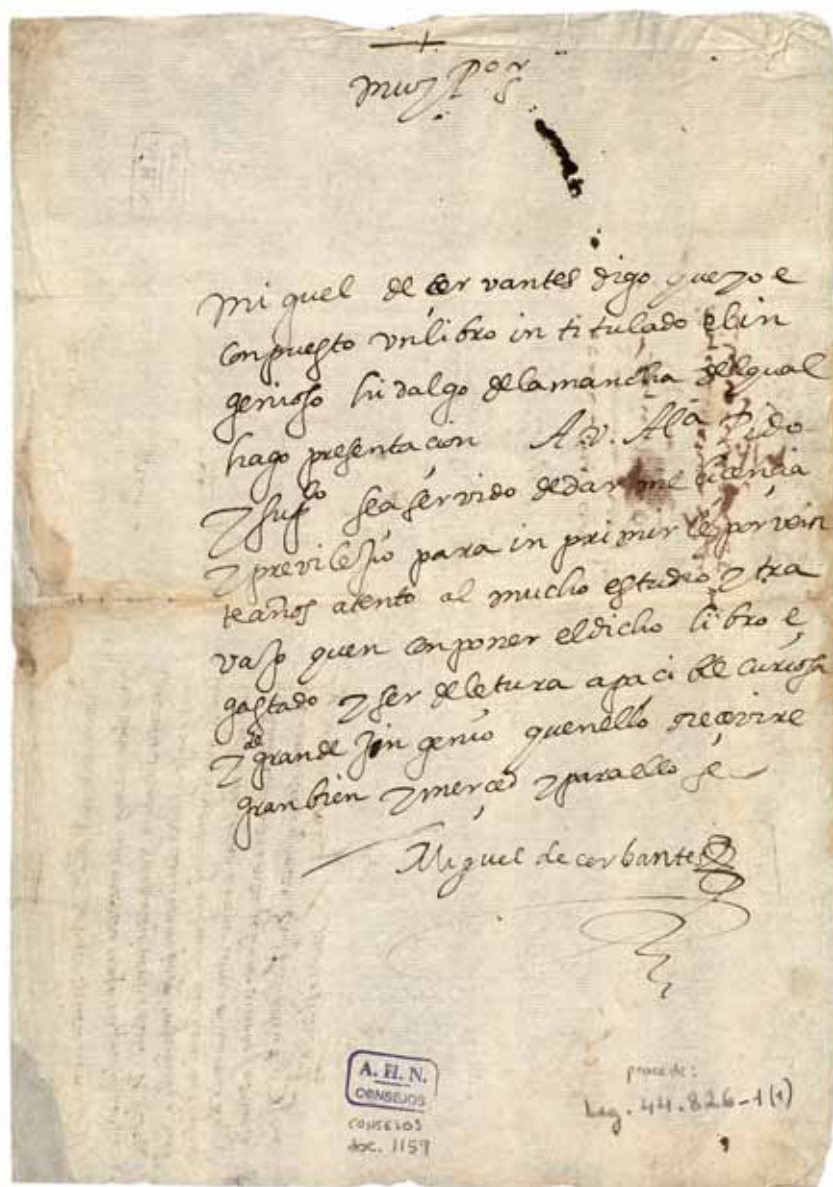 muy Pors
Miguel de cervantes digo que yo e
conpuesto un libro intitulado el in
genioso hidalgo de la mancha del qual
hago presentacion A. v. Alª Pido
y supco sea servido de darme licencia
y previlejio para inprimirle por vein
te años atento al mucho estudio y tra
vajo quen conponer el dicho libro e
gastado y ser de letura apacible curiosa
y de grande ingenio quenello recevire
gran bien y merced y para ello &
Miguel de cerbantes
A. H. N.
CONSEJOS
CONSEJOS
doc. 1159
procede:
Leg. 44.826-1(1)